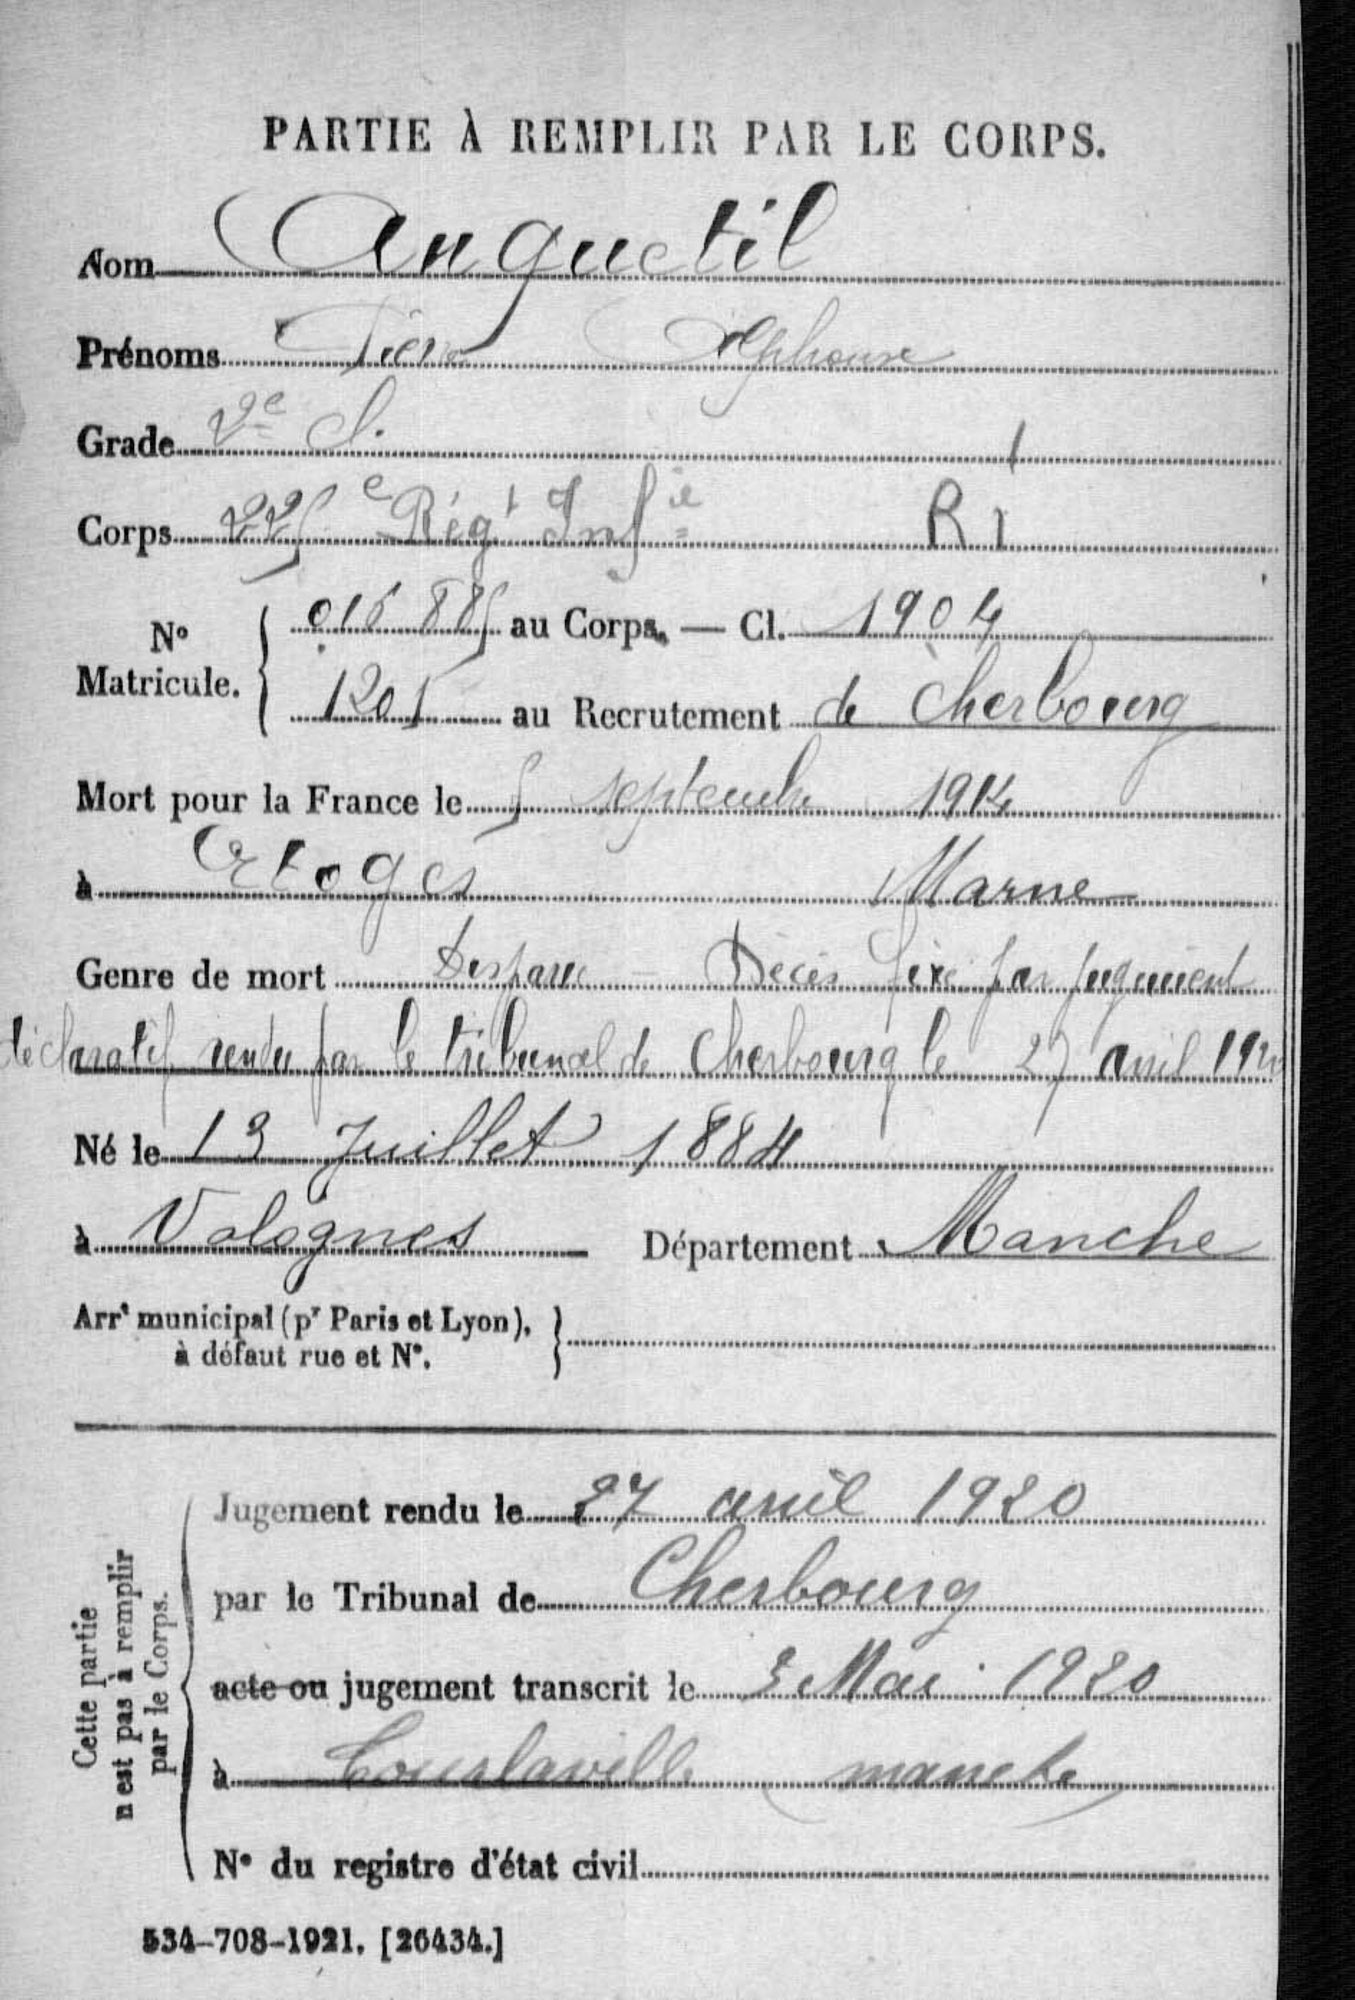 PARTIE À REMPLIR PAR LE CORPS.
Nom Anquetil
Prénoms Pierre Alphonse
Grade 2e cl.
Corps 225e Régt Infie R I
No Matricule. { 016 885 au Corps. — Cl. 1904
1205 au Recrutement de Cherbourg
Mort pour la France le 5 septembre 1914
à Etoges Marne
Genre de mort Disparu - Décès fixé par jugement
déclaratif rendu par le tribunal de Cherbourg le 27 avril 1920
Né le 13 Juillet 1884
à Valognes Département Manche
Arrt municipal (pr Paris et Lyon), }
à défaut rue et No.
Cette partie
n'est pas à remplir
par le Corps.
Jugement rendu le 27 avril 1920
par le Tribunal de Cherbourg
acte ou jugement transcrit le 3 Mai 1920
à Tourlaville manche
No du registre d'état civil
534-708-1921. [26434.]